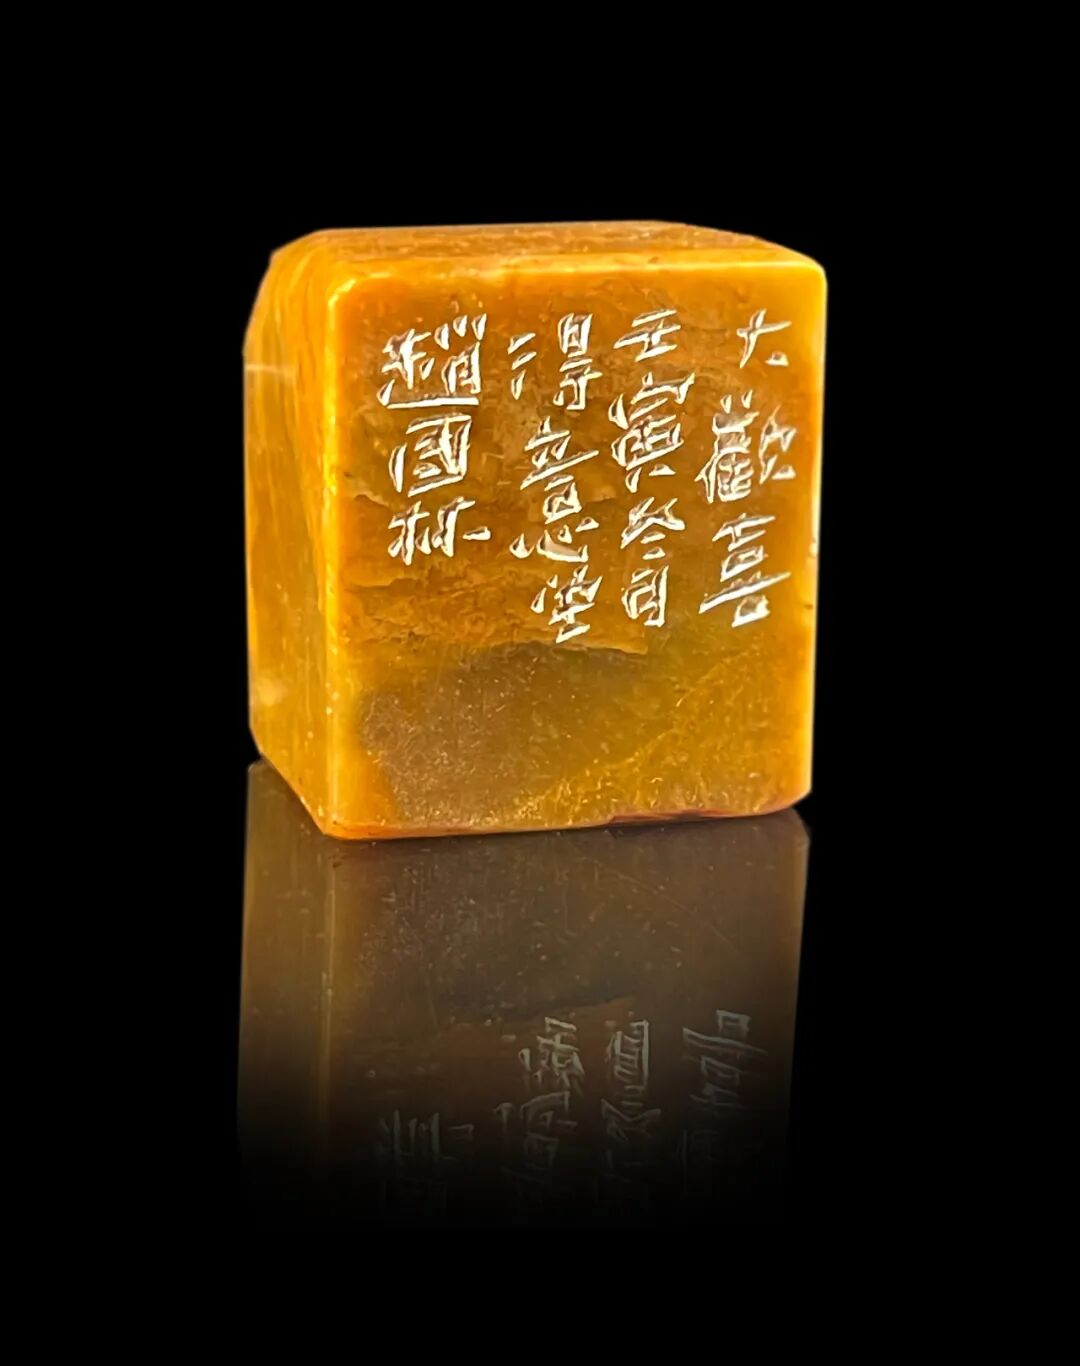 大歡喜
壬寅冬日
得意堂
趙國林